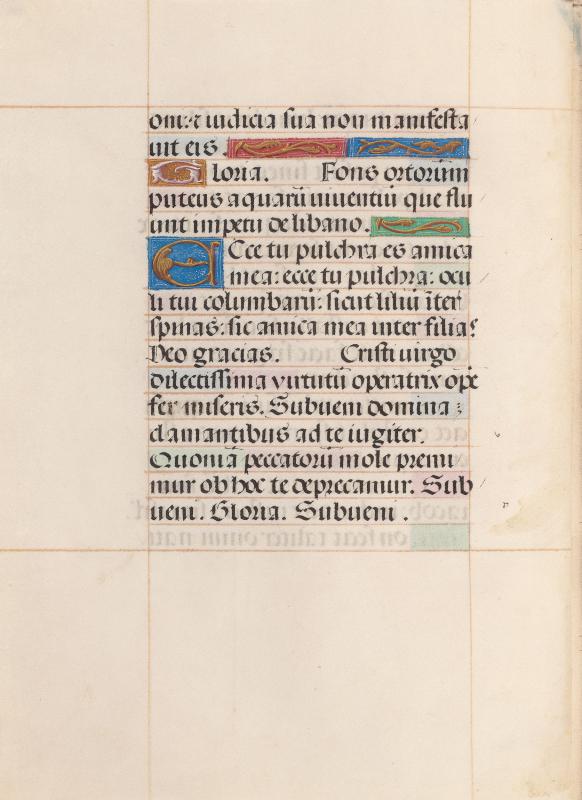 oni: et iudicia sua non manifesta
uit eis.
Gloria. Fons ortorum
puteus aquarū uiuentiū que flu
unt impetu de libano.
Ecce tu pulchra es amica
mea: ecce tu pulchra: ocu
li tui columbarū: sicut liliū īter
spinas: sic amica mea inter filias
Deo gracias. Cristi uirgo
dilectissima virtutū operatrix opē
fer miseris. Subueni domina :
clamantibus ad te iugiter.
Quoniā peccatorū mole premi
mur ob hoc te deprecamur. Sub
ueni. Gloria. Subueni.